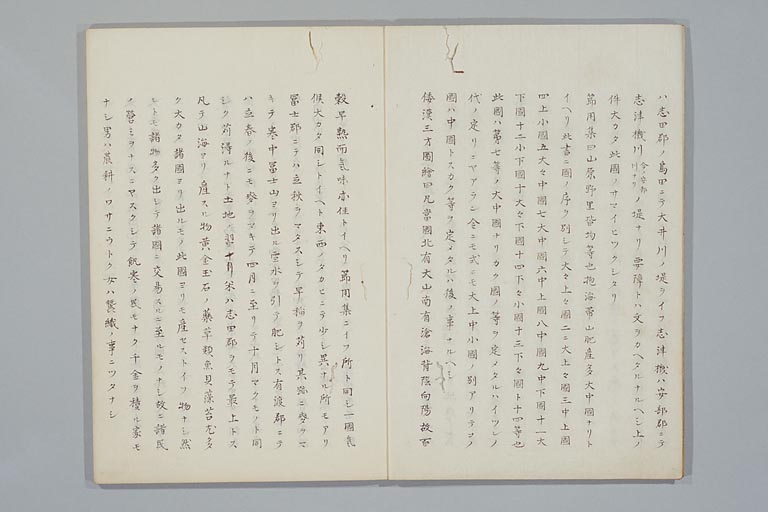 ハ志田郡ノ島田ニテ大井川ノ堤ヲイフ志津機ハ安部郡ニテ
志津機川今安部川ナリノ堤ナリ要障トハ文ヲカヘタルナルヘシ上ノ
件大カタ此國ノサマイヒツクシタリ
節用集曰山原野里沓均等也抱海帶山肥産多大中國ナリト
イヘリ此書ニ國ノ序ヲ別シテ大々上々國二ニ大上々國三中上國
四上小國五大々中國七大中國六中上國八中國九中下國十一大
下國十二小下國十大々下國十四下々小國十三下々國ト十四等也
此國ハ第七等ノ大中國ナリカク國ノ等ヲ定メタルハイツレノ
代ノ定リニヤアラン令ニモ式ニモ大上中小國ノ別アリテコノ
國ハ中國トスカク等ヲ定メタルハ後ノ事ナルヘシ
倭漢三方圖繪曰凡當國北有大山南有滄海背陰向陽故百
穀早熟而氣味亦佳トイヘリ節用集ニイフ所ト同シ一國氣
候大カタ同シトイヘト東西ノタカヒニテ少シ異ナル所モアリ
冨士郡ニテハ立秋ヲマタスシテ早稲ヲ苅リ其跡ニ麥ヲマ
キテ寒中冨士山ヨリ出ル雪水ヲ引テ肥シトス有渡郡ニテ
ハ立春ノ後ニモ麥ヲマキテ四月ニ至リテ十月マクモノト同
シク苅得ルナト土地ノ十月米ハ志田郡ヲモテ最上トス
凡テ山海ヨリ産スル物黄金玉石ノ藥草類魚貝藻苔尤多
ク大カタ諸國ヨリ出ルモノ此國ヨリモ産セストイフ物ナシ然
ルトモ諸物多ク出シテ諸國ニ交易スルニ至ルモノナシ故ニ諸民
ノ營ミヲナスニヤスクシテ飢寒ノ民モナク千金ヲ積ル家モ
ナシ男ハ農耕ノワサニウトク女ハ蠶織ノ事ニツタナシ